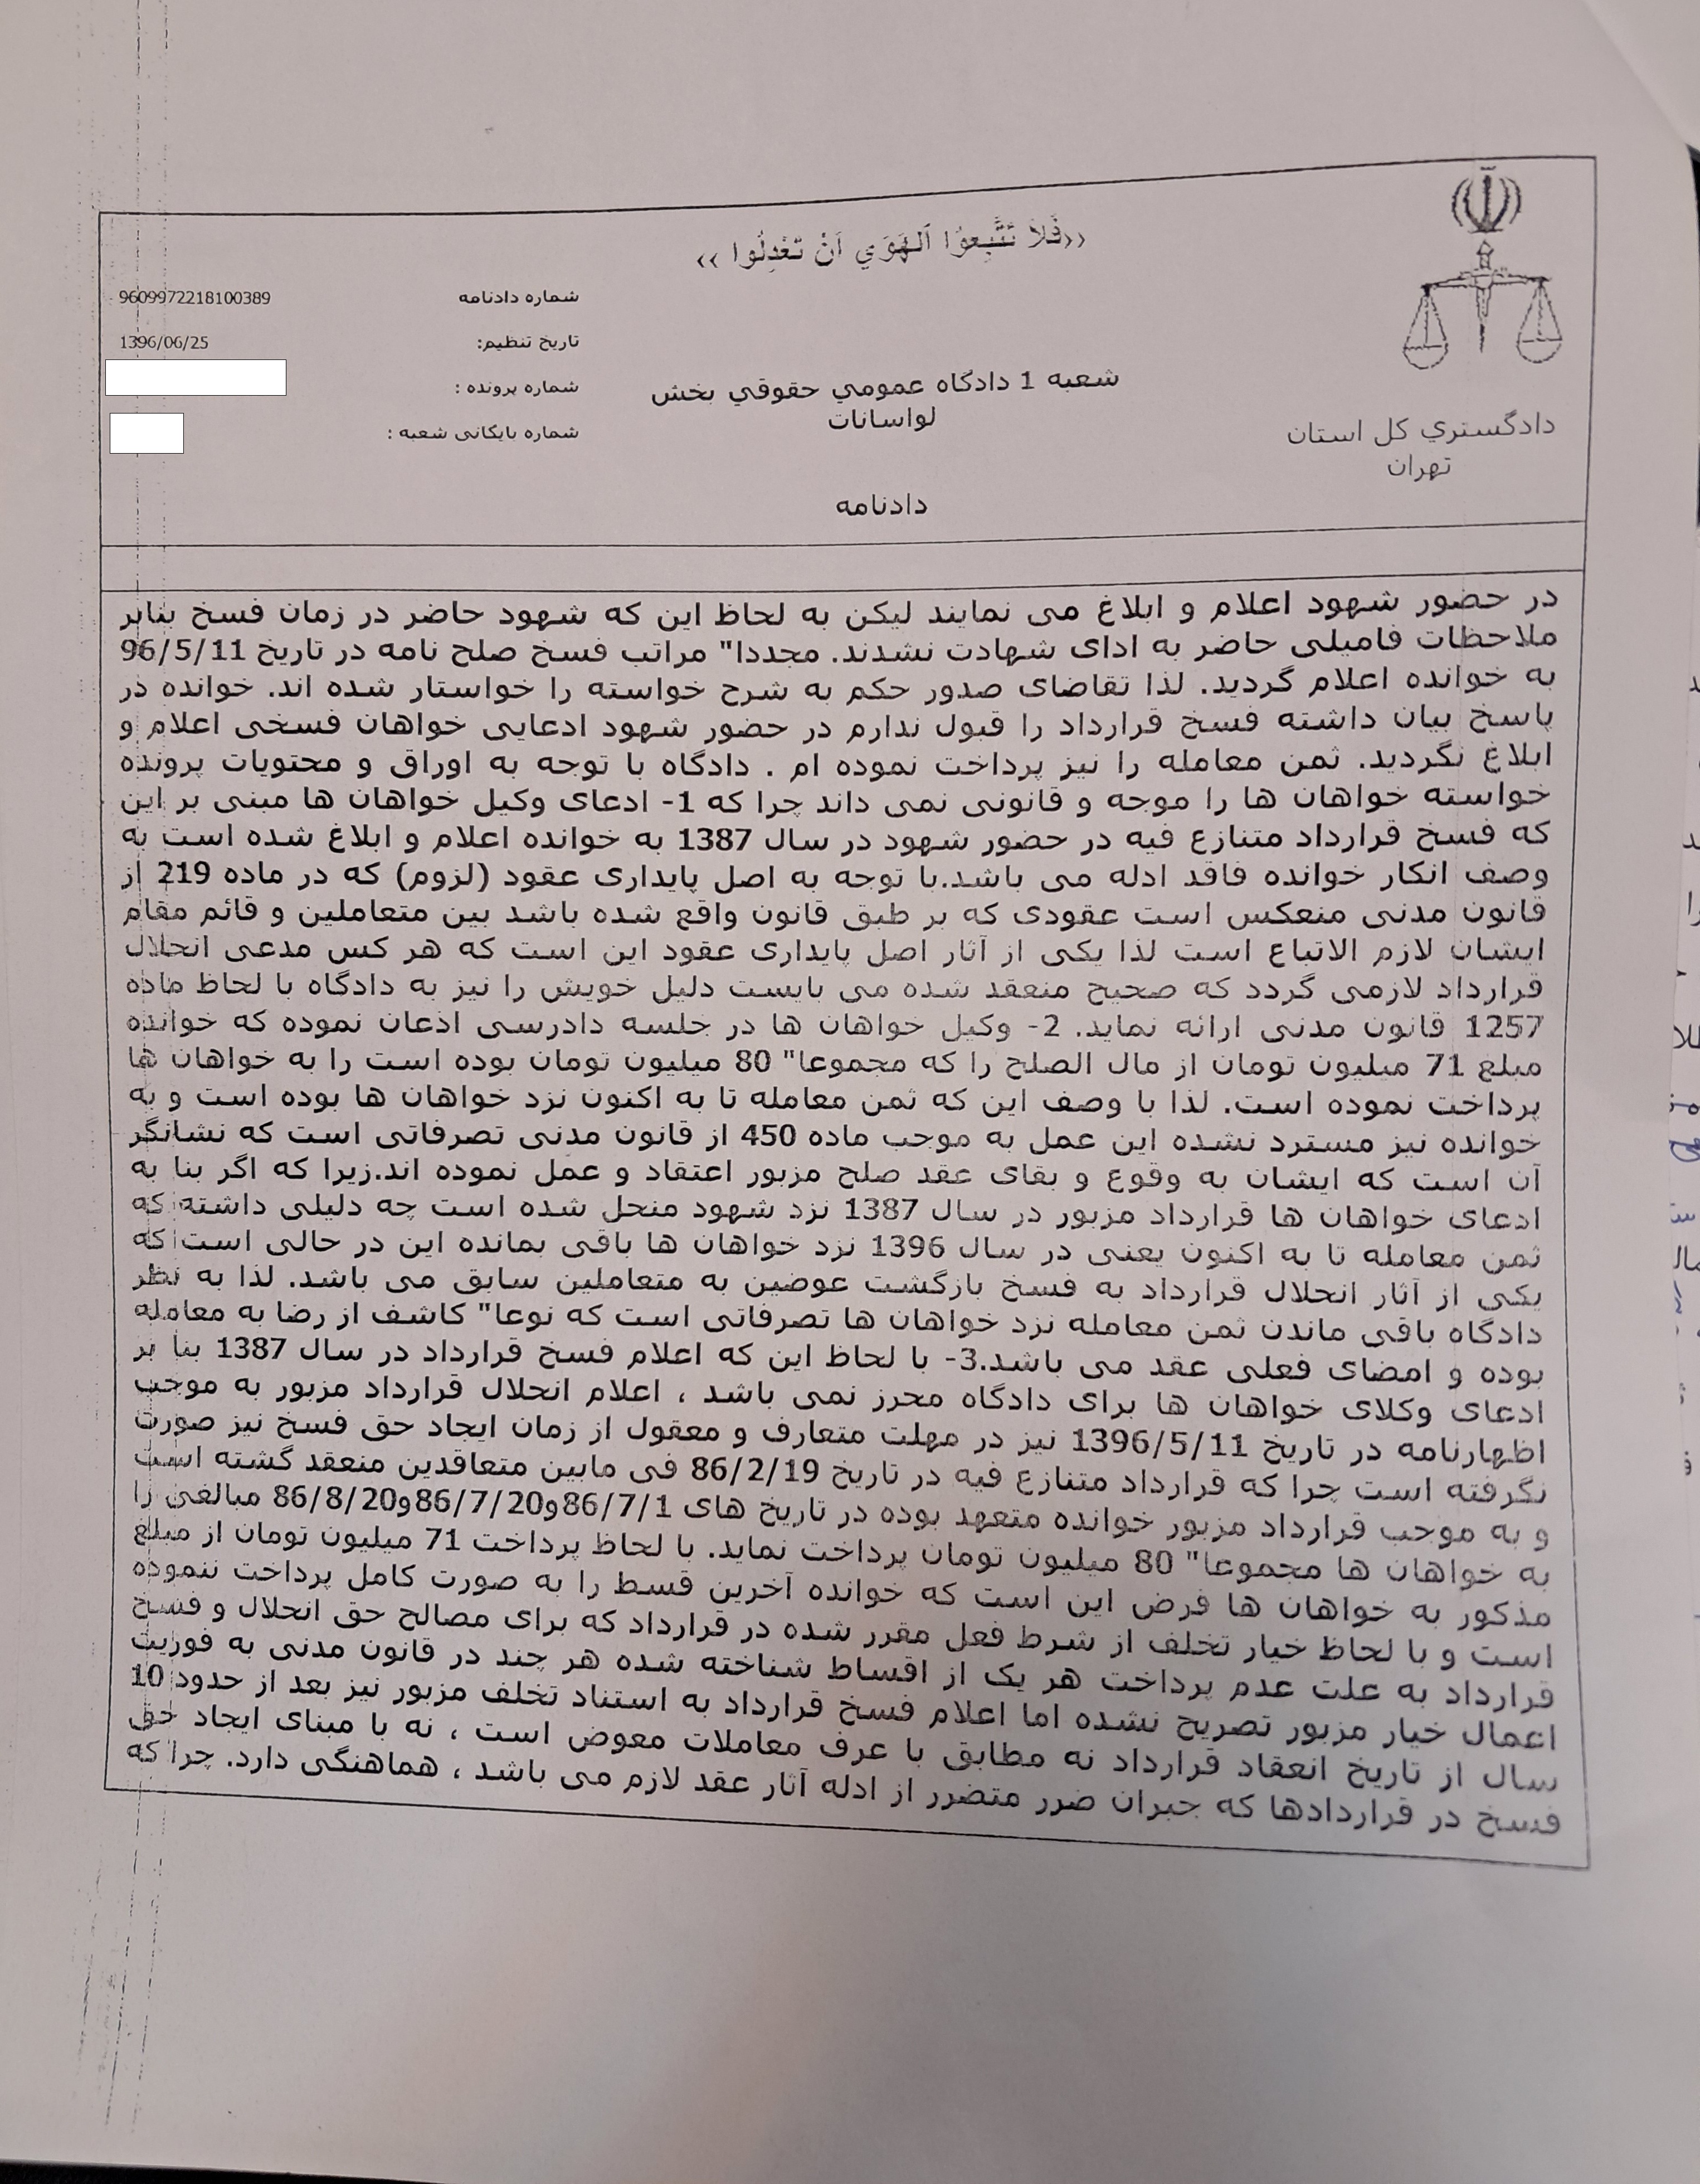 ‹‹فَلاَ تَتَّبِعوُا اَلهَوَي اَنْ تَعْدِلُوا ››
شماره دادنامه 9609972218100389
تاریخ تنظیم: 1396/06/25
شماره پرونده :
شماره بایگانی شعبه :
شعبه 1 دادگاه عمومي حقوقي بخش
لواسانات
دادگستري کل استان
تهران
دادنامه
در حضور شهود اعلام و ابلاغ می نمایند لیکن به لحاظ این که شهود حاضر در زمان فسخ بنابر
ملاحظات فامیلی حاضر به ادای شهادت نشدند. مجددا" مراتب فسخ صلح نامه در تاریخ 96/5/11
به خوانده اعلام گردید. لذا تقاضای صدور حکم به شرح خواسته را خواستار شده اند. خوانده در
پاسخ بیان داشته فسخ قرارداد را قبول ندارم در حضور شهود ادعایی خواهان فسخی اعلام و
ابلاغ نگردید. ثمن معامله را نیز پرداخت نموده ام . دادگاه با توجه به اوراق و محتویات پرونده
خواسته خواهان ها را موجه و قانونی نمی داند چرا که 1- ادعای وکیل خواهان ها مبنی بر این
که فسخ قرارداد متنازع فیه در حضور شهود در سال 1387 به خوانده اعلام و ابلاغ شده است به
وصف انکار خوانده فاقد ادله می باشد.با توجه به اصل پایداری عقود (لزوم) که در ماده 219 از
قانون مدنی منعکس است عقودی که بر طبق قانون واقع شده باشد بین متعاملین و قائم مقام
ایشان لازم الاتباع است لذا یکی از آثار اصل پایداری عقود این است که هر کس مدعی انحلال
قرارداد لازمی گردد که صحیح منعقد شده می بایست دلیل خویش را نیز به دادگاه با لحاظ ماده
1257 قانون مدنی ارائه نماید. 2- وکیل خواهان ها در جلسه دادرسی اذعان نموده که خوانده
مبلغ 71 میلیون تومان از مال الصلح را که مجموعا" 80 میلیون تومان بوده است را به خواهان ها
پرداخت نموده است. لذا با وصف این که ثمن معامله تا به اکنون نزد خواهان ها بوده است و به
خوانده نیز مسترد نشده این عمل به موجب ماده 450 از قانون مدنی تصرفاتی است که نشانگر
آن است که ایشان به وقوع و بقای عقد صلح مزبور اعتقاد و عمل نموده اند.زیرا که اگر بنا به
ادعای خواهان ها قرارداد مزبور در سال 1387 نزد شهود منحل شده است چه دلیلی داشته که
ثمن معامله تا به اکنون یعنی در سال 1396 نزد خواهان ها باقی بمانده این در حالی است که
یکی از آثار انحلال قرارداد به فسخ بازگشت عوضین به متعاملین سابق می باشد. لذا به نظر
دادگاه باقی ماندن ثمن معامله نزد خواهان ها تصرفاتی است که نوعا" کاشف از رضا به معامله
بوده و امضای فعلی عقد می باشد.3- با لحاظ این که اعلام فسخ قرارداد در سال 1387 بنا بر
ادعای وکلای خواهان ها برای دادگاه محرز نمی باشد ، اعلام انحلال قرارداد مزبور به موجب
اظهارنامه در تاریخ 1396/5/11 نیز در مهلت متعارف و معقول از زمان ایجاد حق فسخ نیز صورت
نگرفته است چرا که قرارداد متنازع فیه در تاریخ 86/2/19 فی مابین متعاقدین منعقد گشته است
و به موجب قرارداد مزبور خوانده متعهد بوده در تاریخ های 86/7/1و86/7/20و86/8/20 مبالغی را
به خواهان ها مجموعا" 80 میلیون تومان پرداخت نماید. با لحاظ پرداخت 71 میلیون تومان از مبلغ
مذکور به خواهان ها فرض این است که خوانده آخرین قسط را به صورت کامل پرداخت ننموده
است و با لحاظ خیار تخلف از شرط فعل مقرر شده در قرارداد که برای مصالح حق انحلال و فسخ
قرارداد به علت عدم پرداخت هر یک از اقساط شناخته شده هر چند در قانون مدنی به فوریت
اعمال خیار مزبور تصریح نشده اما اعلام فسخ قرارداد به استناد تخلف مزبور نیز بعد از حدود 10
سال از تاریخ انعقاد قرارداد نه مطابق با عرف معاملات معوض است ، نه با مبنای ایجاد حق
فسخ در قراردادها که جبران ضرر متضرر از ادله آثار عقد لازم می باشد ، هماهنگی دارد. چرا که